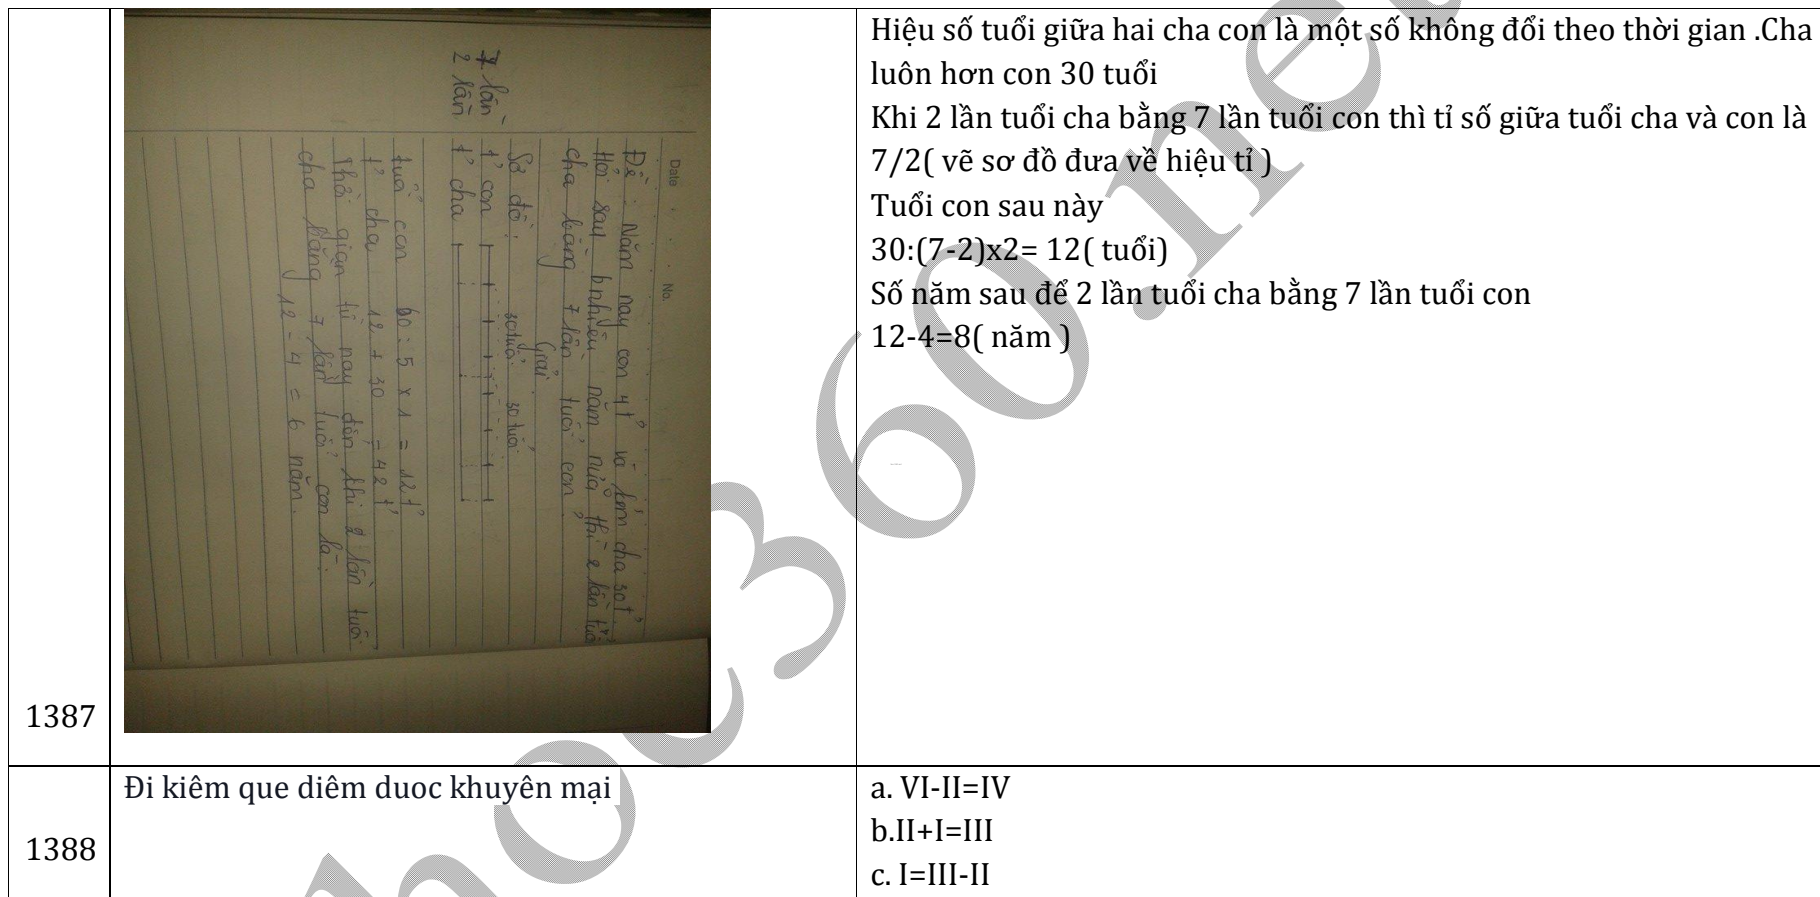 1387
Date No.
Đề: Năm nay con 4t' và kém cha 30t'.
Hỏi sau bnhiêu năm nữa thì 2 lần tuổi
cha bằng 7 lần tuổi con?
Giải
Sơ đồ: 30 tuổi 30 tuổi
7 lần t' con
2 lần t' cha
tuổi con 60 : 5 x 1 = 12t'
t' cha 12 + 30 = 42t'
Thời gian từ nay đến khi 2 lần tuổi
cha bằng 7 lần tuổi con là:
12 - 4 = 6 năm.
Hiệu số tuổi giữa hai cha con là một số không đổi theo thời gian .Cha
luôn hơn con 30 tuổi
Khi 2 lần tuổi cha bằng 7 lần tuổi con thì tỉ số giữa tuổi cha và con là
7/2( vẽ sơ đồ đưa về hiệu tỉ )
Tuổi con sau này
30:(7-2)x2= 12( tuổi)
Số năm sau để 2 lần tuổi cha bằng 7 lần tuổi con
12-4=8( năm )
1388
Đi kiêm que diêm duoc khuyên mại
a. VI-II=IV
b.II+I=III
c. I=III-II
hoc360.net